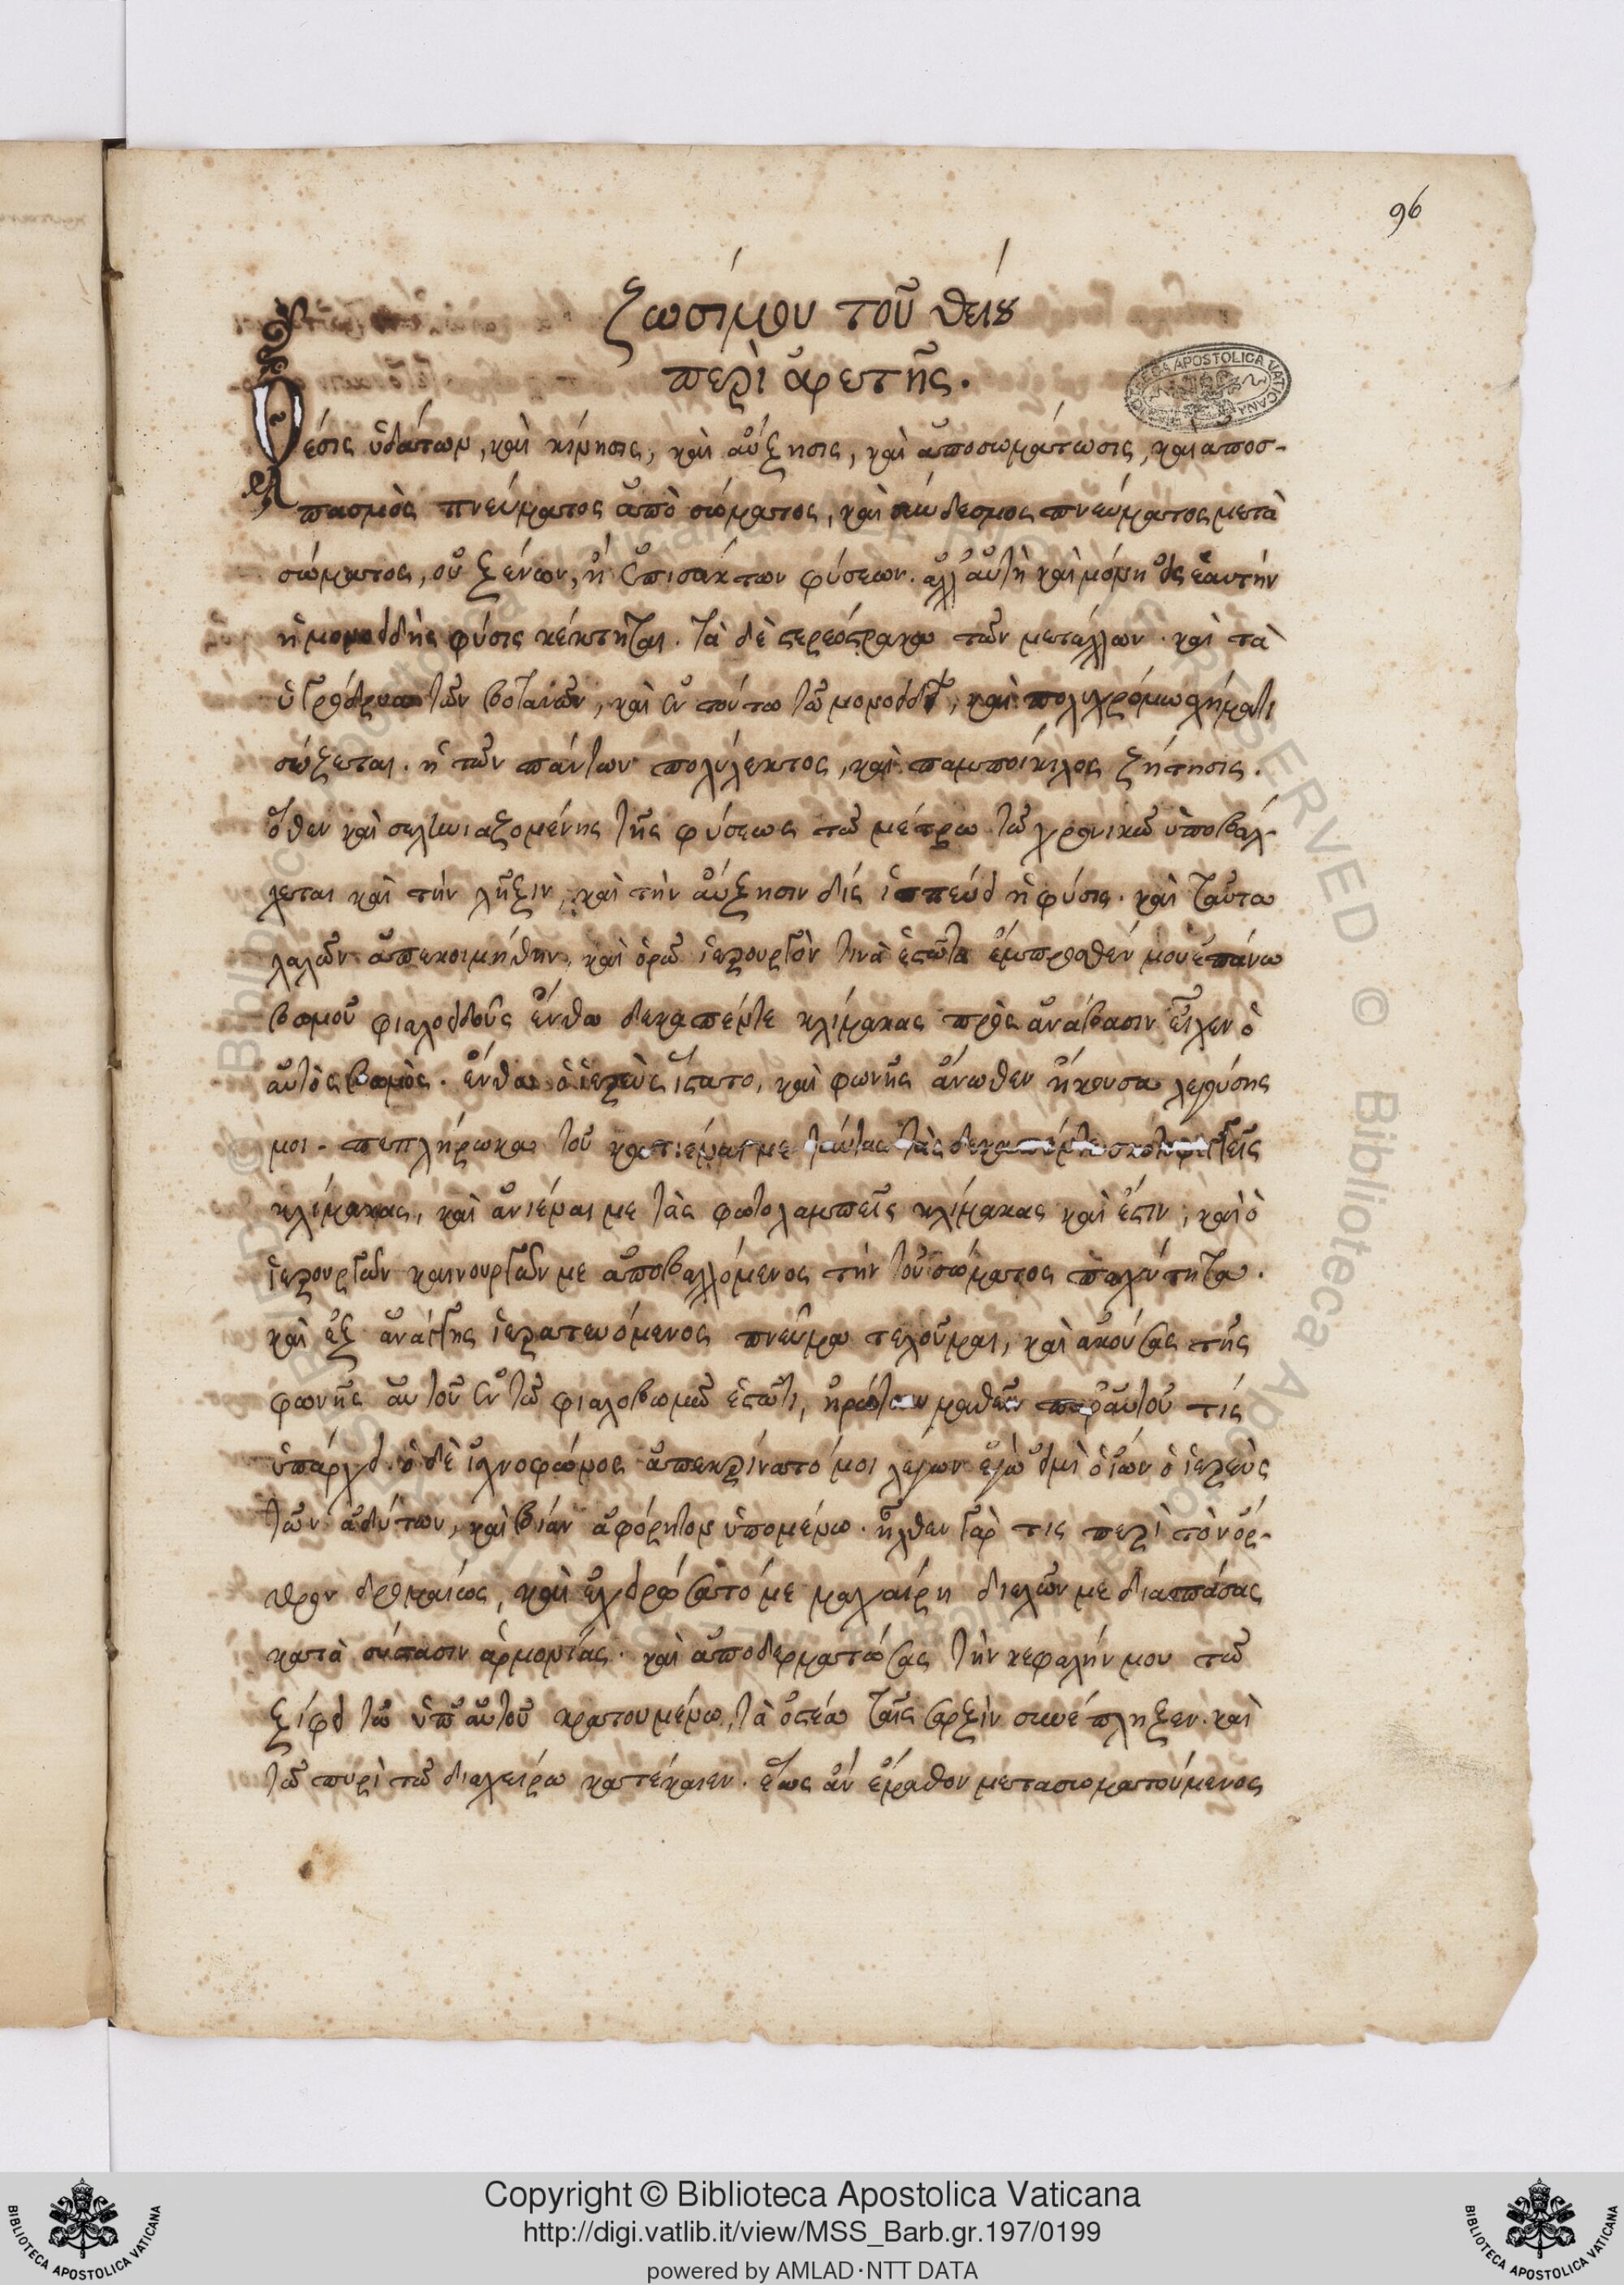 96
ζωσίμου τοῦ θείου
περὶ ἀρετῆς.
Θέσις ὑδάτων, καὶ κίνησις, καὶ αὔξησις, καὶ ἀποσωμάτωσις, καὶ αποσ-
πασμὸς πνεύματος ἀπὸ σώματος, καὶ σύνδεσμος πνεύματος μετὰ
σώματος, οὐ ξένων, ἢ ἐπισάκτων φύσεων. ἀλλ' αὐτὴ καὶ μόνη εἰς ἑαυτὴν
ἡ μονοειδὴς φύσις κέκτηται. τὰ δὲ στερεόστρακα τῶν μετάλλων. καὶ τὰ
ὑγρόδρυα τῶν βοτανῶν, καὶ ἐν τούτω τῶ μονοειδεῖ, καὶ πολυχρόμω σχήματι
σώζεται. ἡ τῶν πάντων πολύλεκτος, καὶ παμποίκιλος ζήτησις.
ὅθεν καὶ σεληνιαζομένης τῆς φύσεως τῶ μέτρω τῶ χρονικῶ ὑποβάλ-
λεται καὶ τὴν λῆξιν, καὶ τὴν αὔξησιν δι' ἧς ἱππεύει ἡ φύσις. καὶ ταῦτα
λαλῶν ἀπεκοιμήθην, καὶ ὁρῶ ἱερουργόν τινὰ ἑστῶτα ἔμπροσθέν μου ἐπάνω
βωμοῦ φιαλοειδοῦς ἔνθα δεκαπέντε κλίμακας πρὸς ἀνάβασιν εἶχεν ὁ
αὐτὸς βωμὸς. ἔνθα ὁ ἱερεὺς ἵστατο, καὶ φωνῆς ἄνωθεν ἤκουσα λεγούσης
μοι. πεπλήρωκα τοῦ κατιέναι με ταύτας τὰς δεκαπέντε σκοτοφεγγεῖς
κλίμακας, καὶ ἀνιέναι με τὰς φωτολαμπεῖς κλίμακας καὶ ἔστιν, καὶ ὁ
ἱερουργῶν καινουργῶν με ἀποβαλλόμενος τὴν τοῦ σώματος παχύτητα.
καὶ ἐξ ἀνάγκης ἱερατευόμενος πνεῦμα τελοῦμαι, καὶ ακούσας τῆς
φωνῆς αὐτοῦ ἐν τῶ φιαλοβωμῶ ἑστῶτι, ἠρώτουν μαθεῖν παρ' αὐτοῦ τίς
ὑπάρχει. ὁ δὲ ἰσχνοφώνος ἀπεκρίνατό μοι λέγων ἐγὼ εἰμὶ ὁ ἰὼν ὁ ἱερεὺς
τῶν ἀδύτων, καὶ βίαν ἀφόρητον ὑπομένω. ἦλθεν γὰρ τις περὶ τὸν ὄρ-
θρον δρομαίως, καὶ ἐχειρώσατό με μαχαίρη διελῶν με διασπάσας
κατὰ σύστασιν ἁρμονίας. καὶ ἀποδερματώσας τὴν κεφαλήν μου τῶ
ξίφει τῶ ὑπ' αὐτοῦ κρατουμένω, τὰ ὀστέα ταῖς σαρξὶν συνέπληξεν. καὶ
τῶ πυρὶ τῶ διαχείρω κατέκαιεν. ἕως ἂν ἔμαθον μετασωματούμενος
BIBLIOTECA APOSTOLICA VATICANA
Copyright © Biblioteca Apostolica Vaticana
http://digi.vatlib.it/view/MSS_Barb.gr.197/0199
powered by AMLAD·NTT DATA